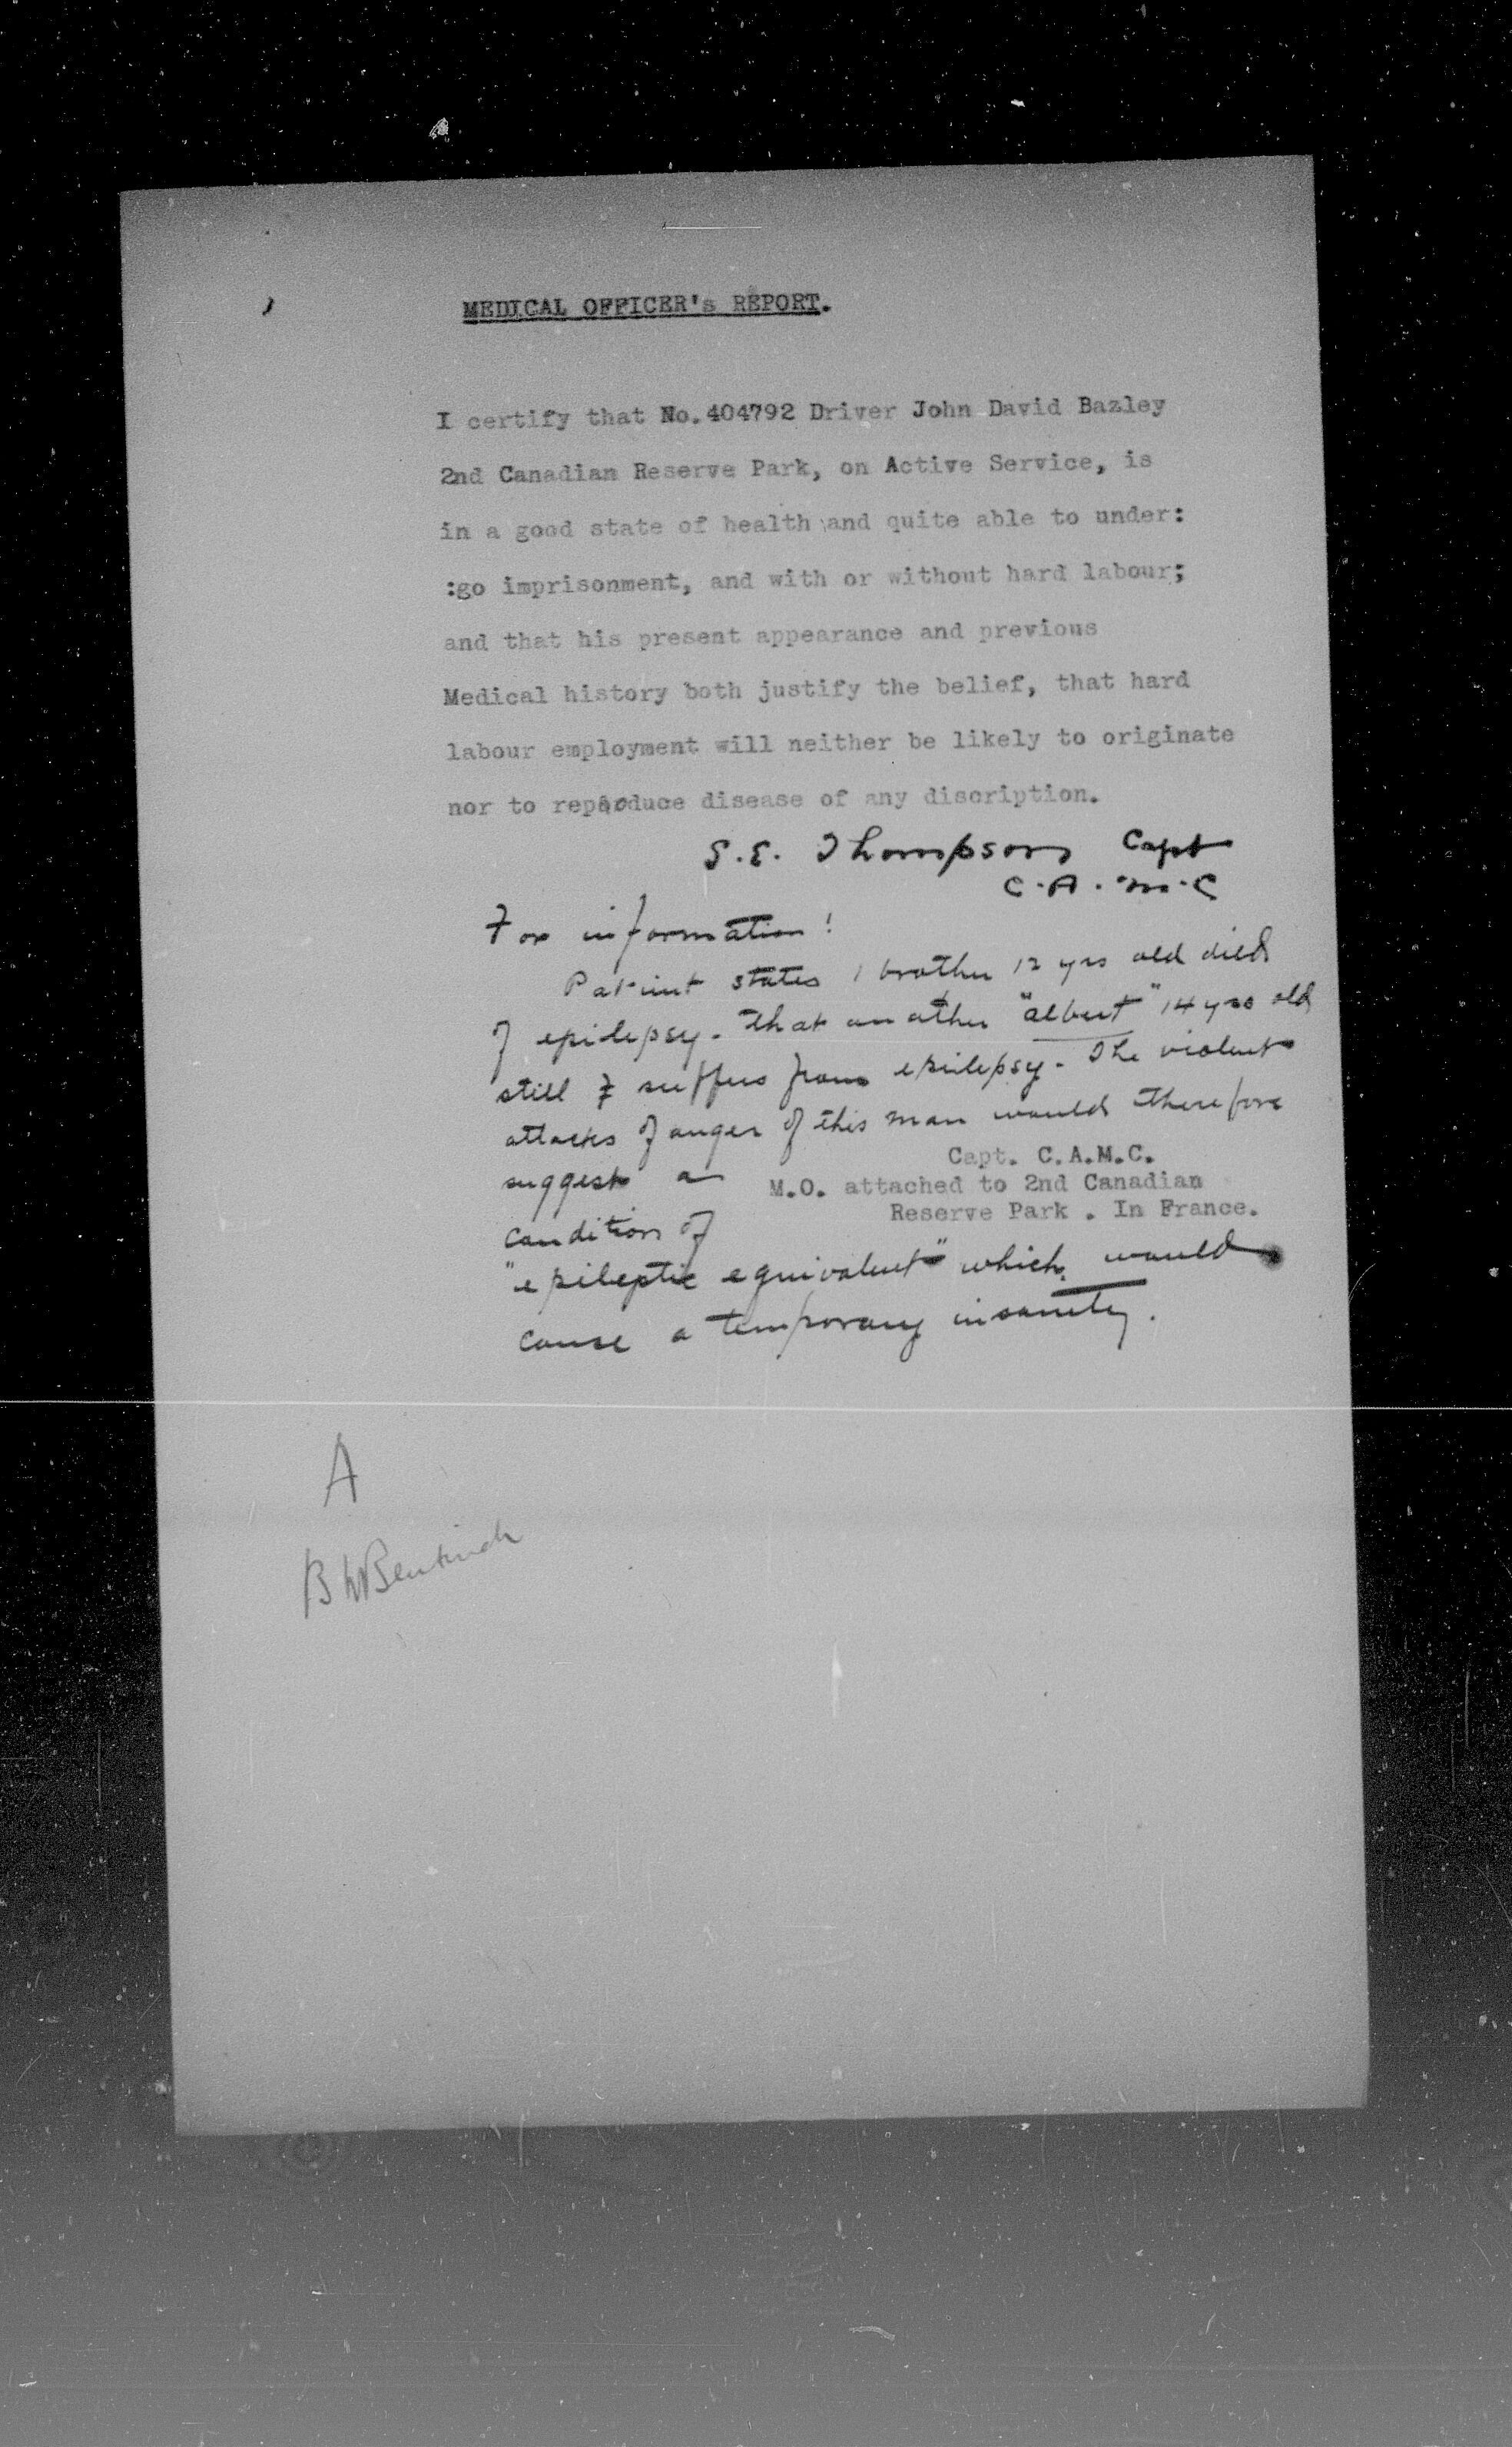 MEDICAL OFFICER's REPORT.
I certify that No.404792 Driver John David Bazley
2nd Canadian Reserve Park, on Active Service, is
in a good state of health and quite able to under:
:go imprisonment, and with or without hard labour;
and that his present appearance and previous
Medical history both justify the belief, that hard
labour employment will neither be likely to originate
nor to reproduce disease of any discription.
S.E. Thompson Capt
C.A.M.C
For information!
Patient states 1 brother 12 yrs old died
of epilepsy. That another "Albert" 14 yrs old
still suffers from epilepsy. The violent
attacks of anger of this man would therefore
suggest a
Capt. C.A.M.C.
M.O. attached to 2nd Canadian
Reserve Park . In France.
condition of
"epileptic equivalent" which would
cause a temporary insanity.
A